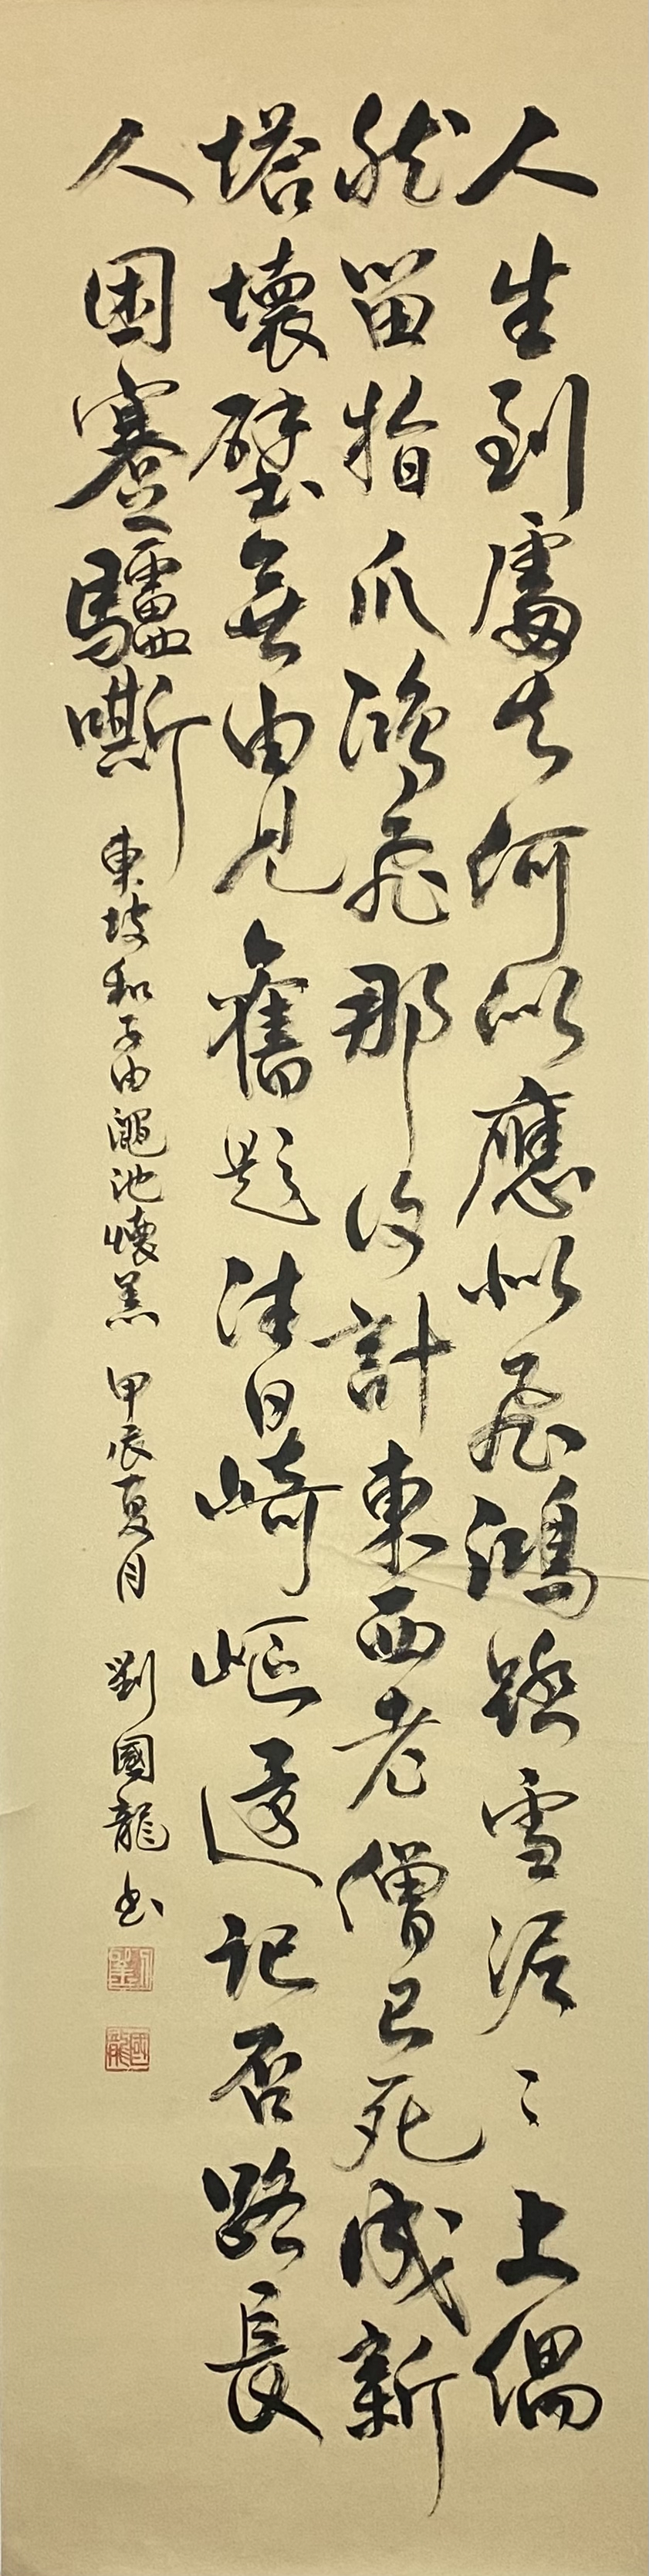 人生到處知何似應似飛鴻踏雪泥〻上偶
然留指爪鴻飛那復計東西老僧已死成新
塔壞壁無由見舊題往日崎嶇還記否路長
人困蹇驢嘶
東坡和子由澠池懷舊 甲辰夏月 劉國龍書
國龍